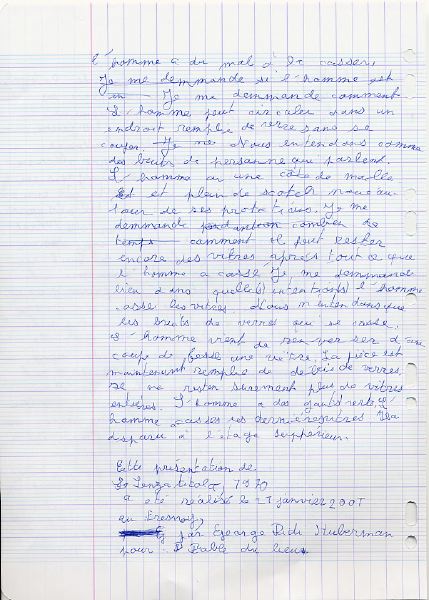 l'homme a du mal à la casser,
Je me demmande si l'homme est
en Je me demmande comment
L'homme peut circuler dans un
endroit remplie de verre sans se
couper. Je me Nous entendons comme
des bruit de personne qui parlent.
L'homme a une côte de maille
Et et plein de scotch marron au
tour de ses protections. Je me
demmande combien de
temps comment il peut rester
encore des vitres après tout ce que
l'homme a casse Je me demmande
bien dans quelle(s) intention(s) l'homme
casse les vitres. Nous n'entendons que
les bruits de verres qui se casse.
L'homme vient de renverser d'un
coup de fasse une vitre. La pièce est
maintenant remplie de debris de verres.
Il ne resten surement plus de vitres
entières. L'homme a des gants verts, L'
homme casses les dernières vitres Il a
disparu à l'étage supperieur.
Cette présentation de
1970
a été réalisé le 27 janvier 2001
au Fresnoy,
par George Didi Huberman
pour Fable du lieu.